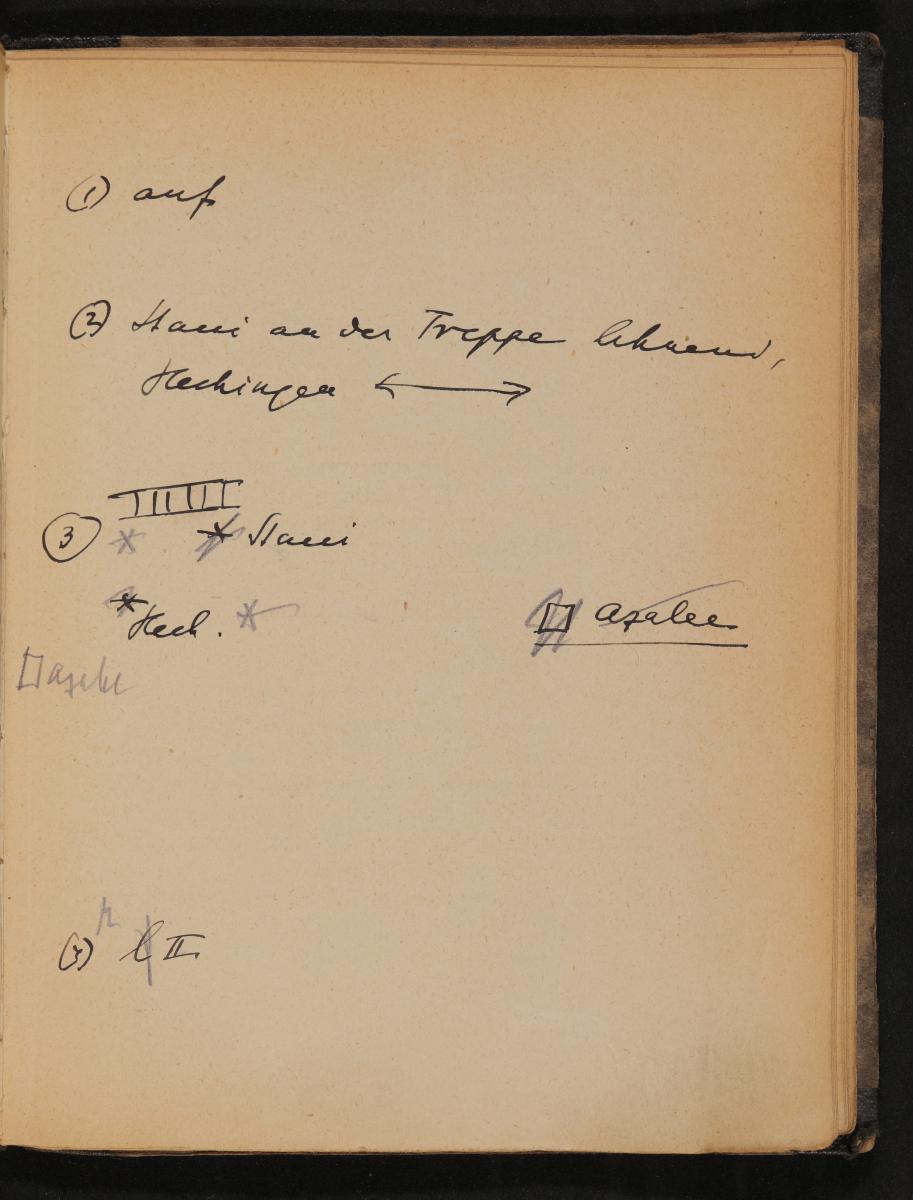 ① auf
② Stani an der Treppe lehnend,
Hechingen ⟷
③ * * Stani
* Hech. * □ Azalee
□ Azalee
II